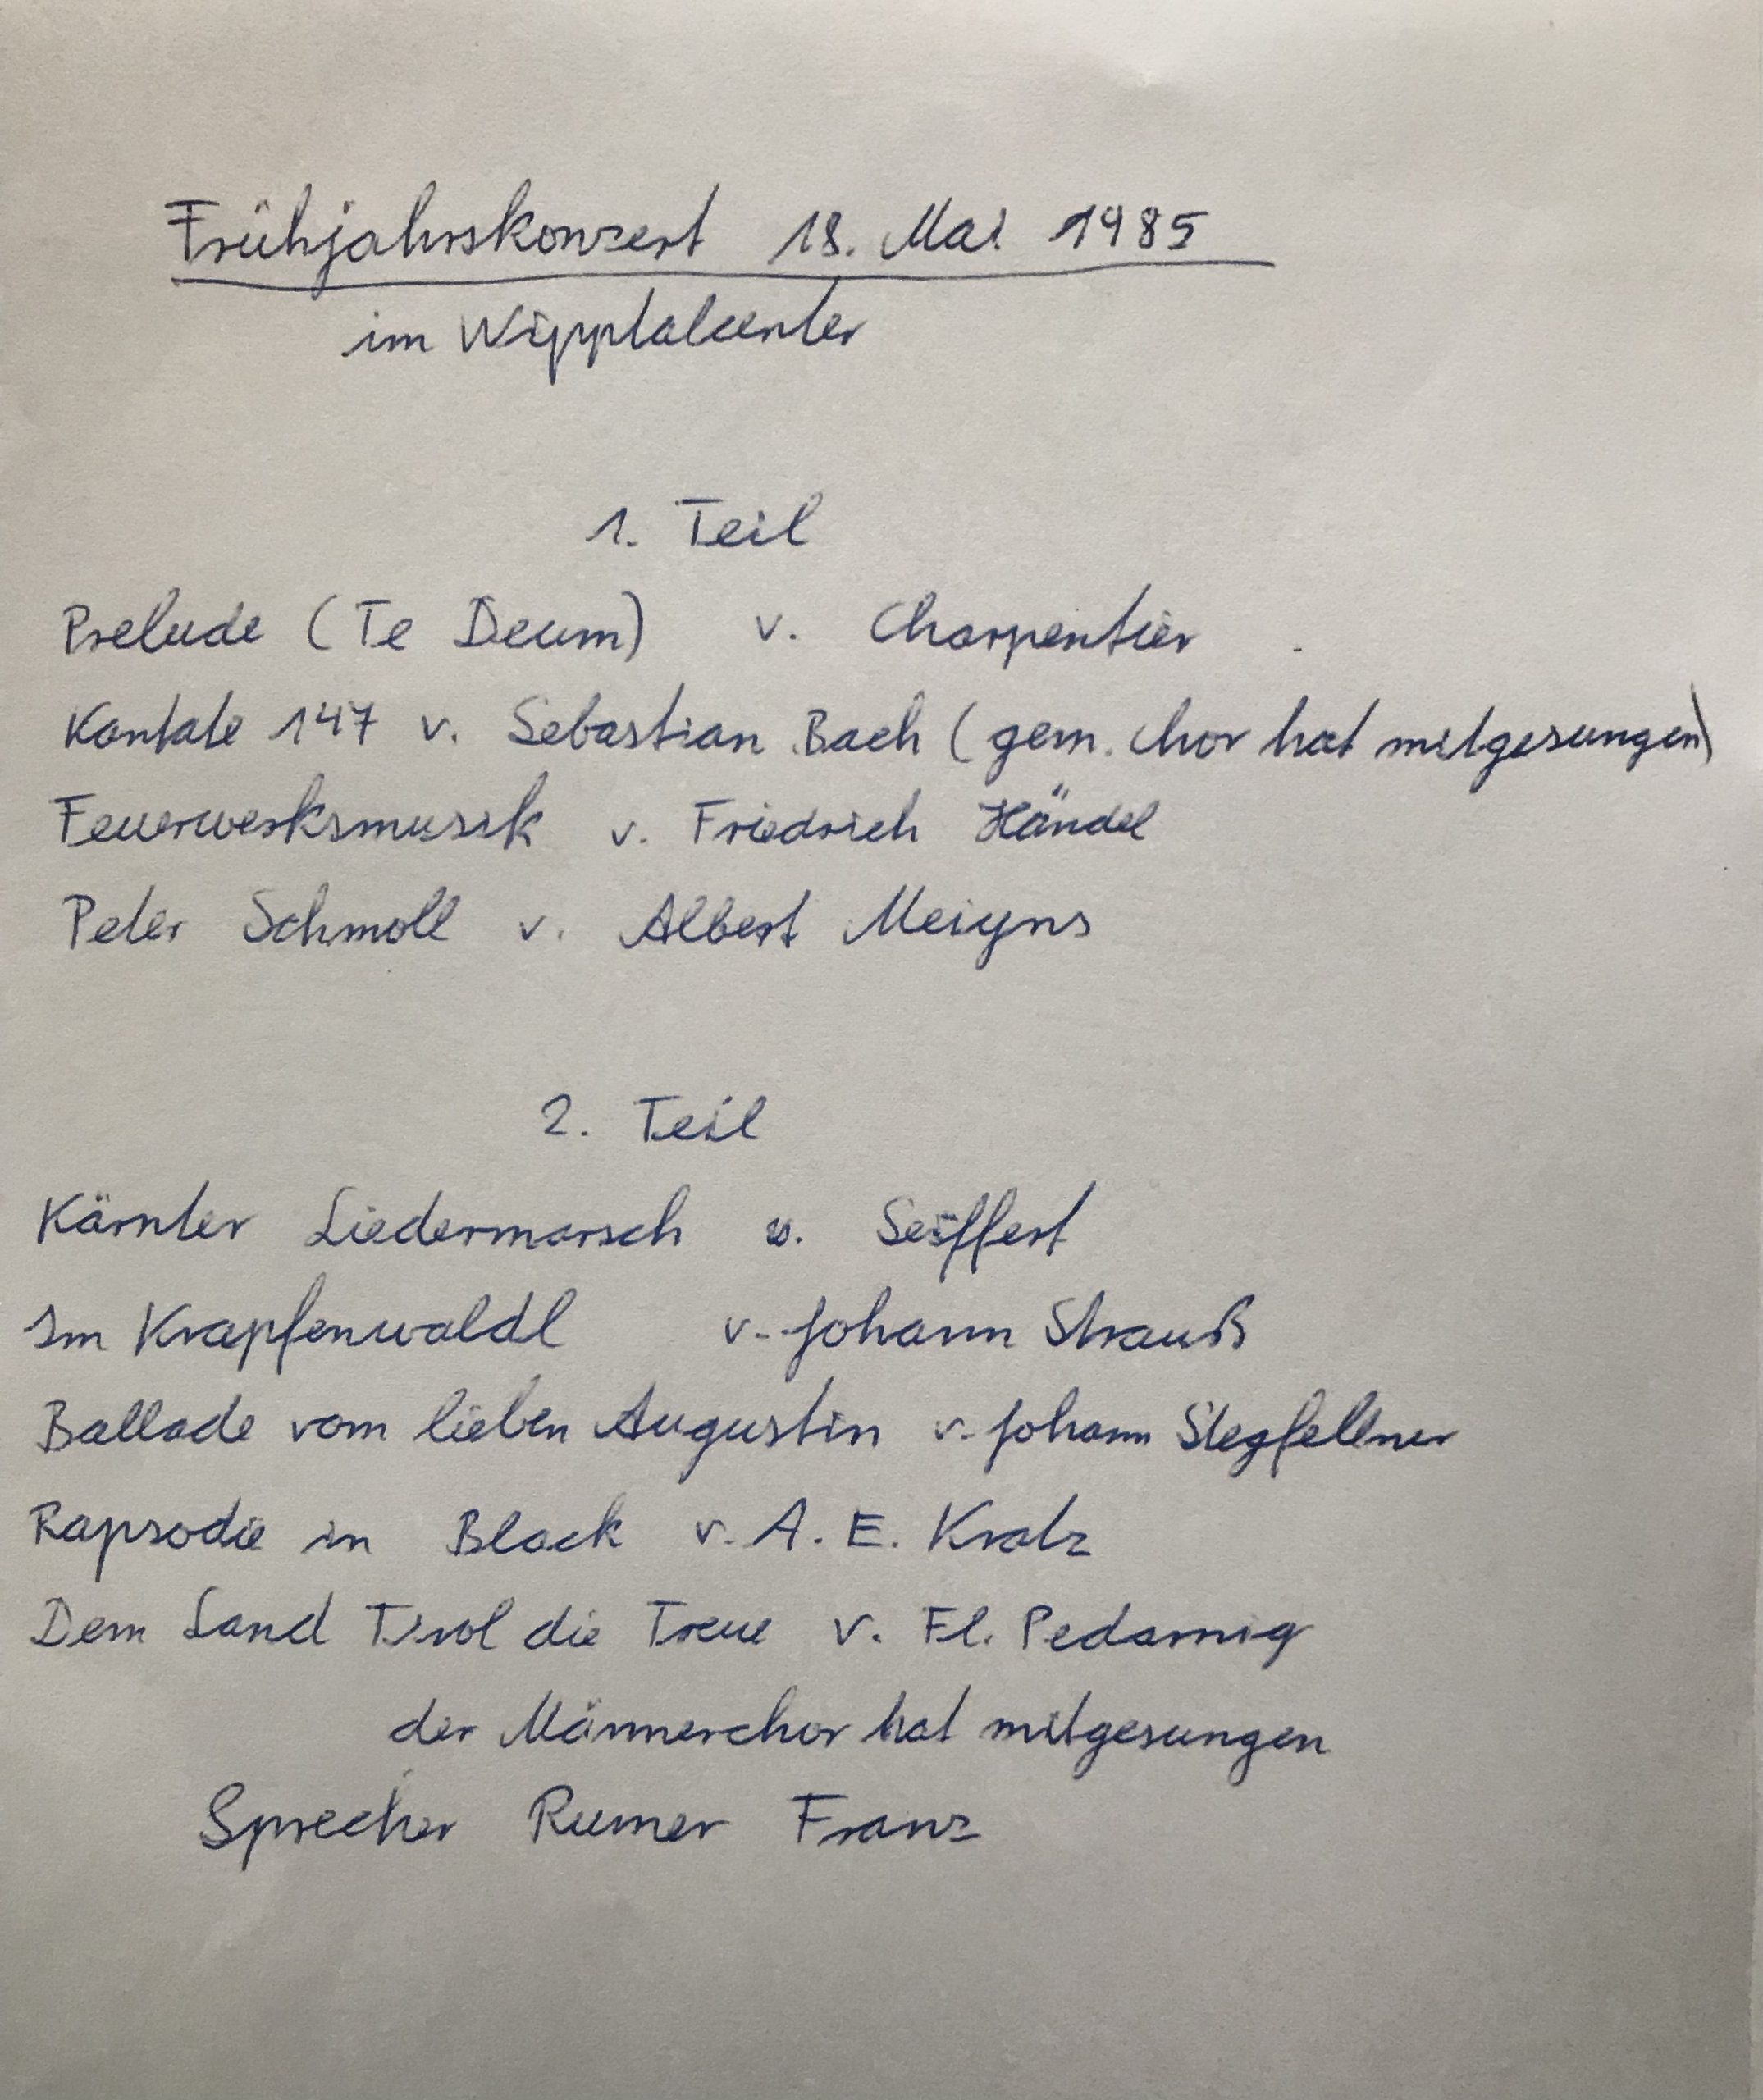 Frühjahrskonzert 18. Mai 1985
im Wipptalcenter
1. Teil
Prelude (Te Deum) v. Charpentier
Kantate 147 v. Sebastian Bach (gem. Chor hat mitgesungen)
Feuerwerksmusik v. Friedrich Händel
Peter Schmoll v. Albert Meiyns
2. Teil
Kärnter Liedermarsch v. Seiffert
Im Krapfenwaldl v. Johann Strauß
Ballade vom lieben Augustin v. Johann Stegfellner
Rapsodie in Black v. A. E. Kratz
Dem Land Tirol die Treue v. Fl. Pedarnig
der Männerchor hat mitgesungen
Sprecher Rumer Franz